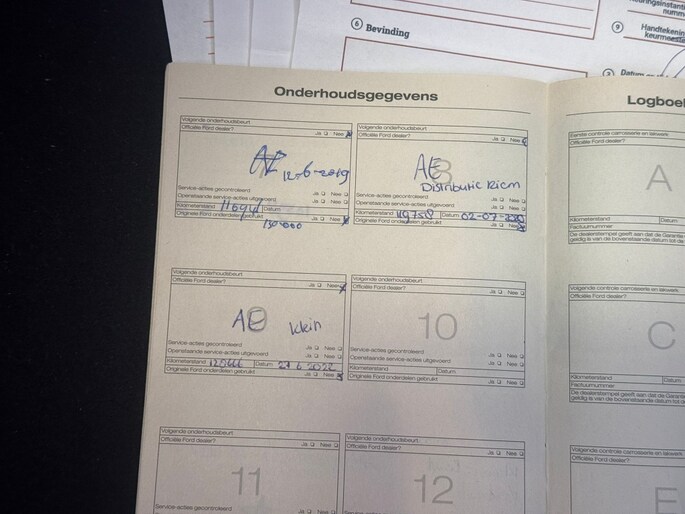 6 Bevinding
9 Handtekenin
keurmeeste
Datum
Onderhoudsgegevens
Volgende onderhoudsbeurt
Officiële Ford dealer? Ja Nee
12-6-2019
Service-acties gecontroleerd Ja Nee
Openstaande service-acties uitgevoerd Ja Nee
Kilometerstand Datum
Originele Ford onderdelen gebruikt Ja Nee
130.000
Volgende onderhoudsbeurt
Officiële Ford dealer? Ja Nee
8
AE
Distributie Riem
Service-acties gecontroleerd Ja Nee
Openstaande service-acties uitgevoerd Ja Nee
Kilometerstand Datum 02-07-2020
Originele Ford onderdelen gebruikt Ja Nee
Volgende onderhoudsbeurt
Officiële Ford dealer? Ja Nee
9
AE klein
Service-acties gecontroleerd Ja Nee
Openstaande service-acties uitgevoerd Ja Nee
Kilometerstand 120666 Datum 27 6 2022
Originele Ford onderdelen gebruikt Ja Nee
Volgende onderhoudsbeurt
Officiële Ford dealer? Ja Nee
10
Service-acties gecontroleerd Ja Nee
Openstaande service-acties uitgevoerd Ja Nee
Kilometerstand Datum
Originele Ford onderdelen gebruikt Ja Nee
Volgende onderhoudsbeurt
Officiële Ford dealer? Ja Nee
11
Service-acties gecontroleerd
Volgende onderhoudsbeurt
Officiële Ford dealer? Ja Nee
12
Service-acties gecontroleerd
Logboek
Eerste controle carrosserie en lakwerk
Officiële Ford dealer?
A
Kilometerstand Datum
Factuurnummer
De dealerstempel geeft aan dat de Garantie
geldig is van de bovenstaande datum tot de
Volgende controle carrosserie en lakwerk
Officiële Ford dealer?
C
Kilometerstand Datum
Factuurnummer
De dealerstempel geeft aan dat de Garantie
geldig is van de bovenstaande datum tot de
Volgende controle carrosserie en lakwerk
Officiële Ford dealer?
E